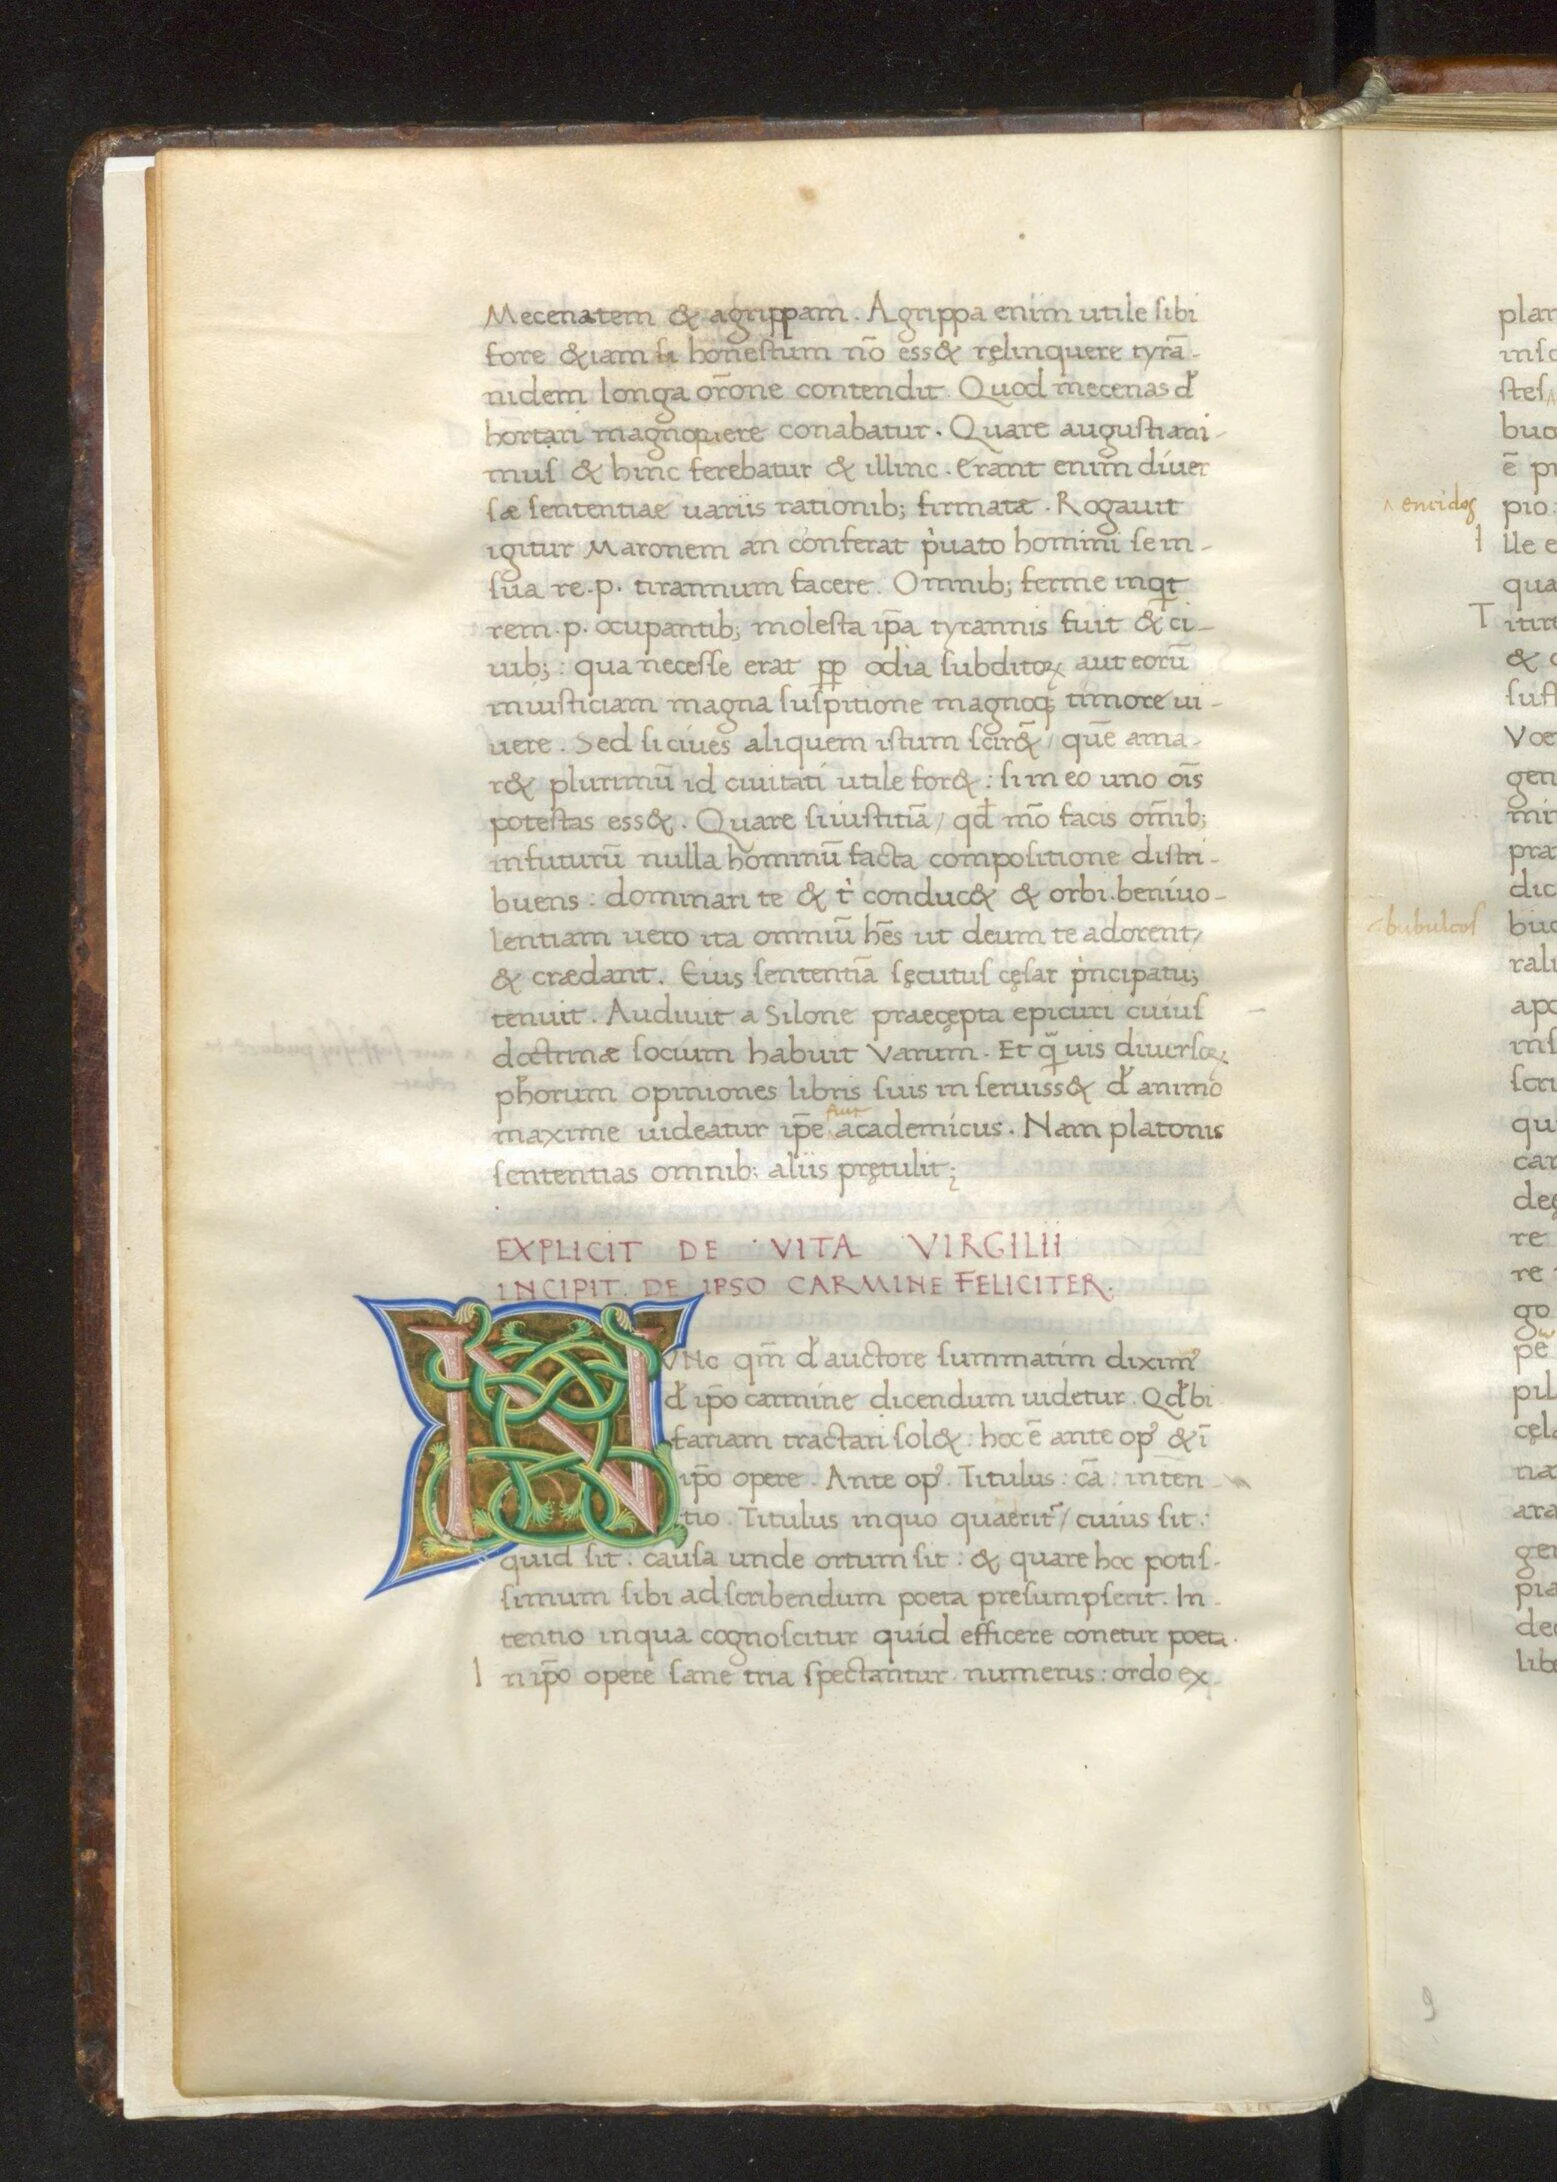 Mecenatem & agrippam. Agrippa enim utile ſibi
fore &iam ſi honeſtum nō ess& ręlinquere tyrā-
nidem longa or̄one contendit. Quod mecenas đ
hortari magnopere conabatur. Quare auguſti ani-
muſ & hinc ferebatur & illinc. Erant enim diuer
ſæ ſententiae uariis rationib; firmatæ. Rogauit
igitur Maronem an conferat p̍uato homini ſe in-
ſua re.p. tirannum facere. Omnib; ferme inqt
rem.p. ocupantib; moleſta ip̄a tyrannis fuit & ci-
uib;: qua neceſſe erat ꝓp odia ſubditoꝝ aut eorū
iniuſticiam magna ſuſpitione magnoq; timore ui-
uere. Sed ſi ciues aliquem iſtum ſcir&̄/ quē ama-
r& plurimū id ciuitati utile for&: ſi in eo uno oīs
poteſtas ess&. Quare ſi iuſtitiā/ qđ mō facis om̄ib;
infuturū nulla hominū facta compoſitione diſtri-
buens: dominari te & t̍ conduc& & orbi. beniuo-
lentiam uero ita omniū hēs ut deum te adorent/
& crædant. Eius ſententiā ſęcutuſ cęſar p̍ncipatu;
tenuit. Audiuit a Silone praecępta epicuri cuiuſ
doctrinæ ſocium habuit Varum. Et q̄uis diuerſoꝝ
ph̄orum opiniones libris ſuis inſeruiss& đ animo
maxime uideatur ip̄e fuit academicus. Nam platonis
ſententias omnib; aliis prętulit;
EXPLICIT DE VITA VIRGILII
INCIPIT. DE IPSO CARMINE FELICITER.
NVNc qm̄ đ auctore ſummatim diximꝰ
đ ip̄o carmine dicendum uidetur. Qđ bi
fariam tractari ſol&: hoc ē ante opꝰ & ī
ip̄o opere. Ante opꝰ. Titulus: cā: inten-
tio. Titulus inquo quaerit᷑/ cuius ſit:
quid ſit. cauſa unde ortum ſit: & quare hoc potiſ-
ſimum ſibi adſcribendum poeta preſumpſerit. In-
tentio inqua cognoſcitur quid efficere conetur poeta.
In ip̄o opere ſane tria ſpectantur. numerus: ordo ex-
plan
ſteſ
buc
ē pr
enridoſ
pio:
Ille e
qua
Titire
& c
ſuſſ
Voe
gen
min
pra
dic
bubulcoſ
buc
rali
apo
inſ
ſcri
qu
car
deg
re
re
go
pe
pil
cęla
na
ara
ger
pia
dec
libe
9